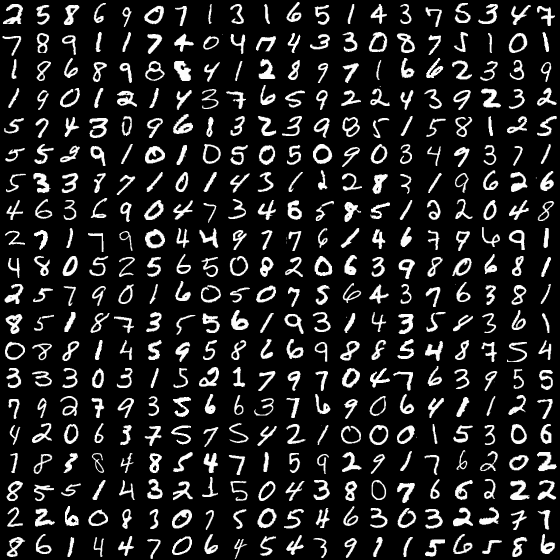 2 5 8 6 9 0 7 1 3 1 6 5 1 4 3 7 5 3 4 7
7 8 9 1 1 7 4 0 4 7 4 3 3 0 8 7 5 1 0 1
1 8 6 8 9 8 8 4 1 2 8 9 7 1 6 6 2 3 3 9
1 9 0 1 2 1 4 3 7 6 5 9 2 2 4 3 9 2 3 2
5 7 4 3 0 9 6 1 3 2 3 9 8 5 1 5 8 1 2 5
5 5 2 9 1 0 1 0 5 0 5 0 9 0 3 4 9 3 7 1
5 3 3 8 7 1 0 1 4 3 1 1 2 8 3 1 9 6 2 6
4 6 3 6 9 0 4 7 3 4 6 5 8 5 1 2 2 0 4 8
2 7 1 7 9 0 4 4 9 7 7 6 1 4 6 7 9 6 9 1
4 8 0 5 2 5 6 5 0 8 2 0 6 3 9 8 0 6 8 1
2 5 7 9 0 1 6 0 5 0 7 5 6 4 3 7 6 3 8 1
8 5 1 8 7 3 5 5 6 1 9 3 1 4 3 5 8 3 6 1
0 8 8 1 4 5 9 5 8 6 6 9 8 8 5 4 8 7 5 4
3 3 3 0 3 1 5 2 1 7 9 7 0 4 7 6 3 9 5 5
7 9 2 7 9 3 5 6 6 3 7 6 9 0 6 4 1 1 2 7
4 2 0 6 3 7 5 7 5 4 2 1 0 0 0 1 5 3 0 6
1 8 3 8 4 8 5 4 7 1 5 9 2 9 1 7 6 2 0 2
8 5 5 1 4 3 2 1 5 0 4 3 8 0 7 6 6 2 2 2
2 2 6 0 8 3 0 7 5 0 5 4 6 3 0 3 2 2 7 7
8 6 1 4 4 7 0 6 4 5 4 3 9 1 1 5 6 5 8 6